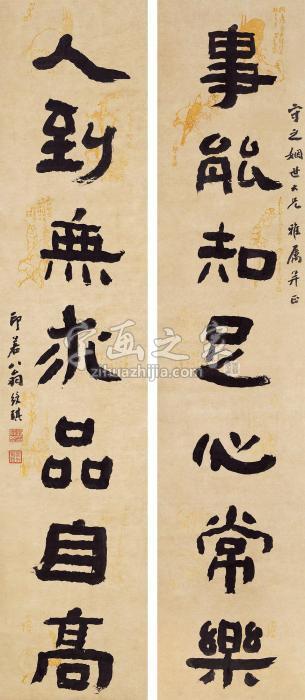 守之姻世大兄雅属并正
事能知足心常樂
人到無求品自高
印若翁綬琪
字画之家
zihuazhijia.com